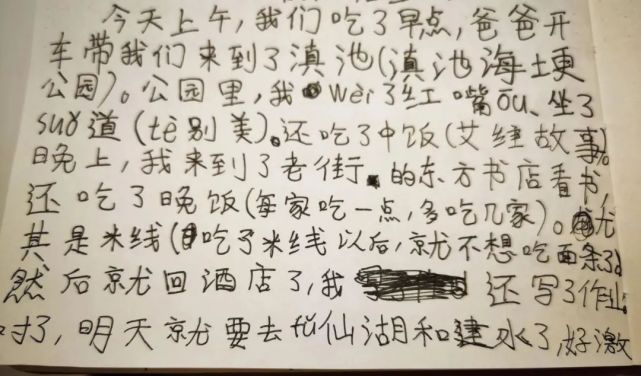 今天上午，我们吃了早点，爸爸开
车带我们来到了滇池(滇池海埂
公园)。公园里，我wèi了红嘴ōu、坐了
suǒ道(tè别美)。还吃了中饭(艾绿故事)。
晚上，我来到了老街的东方书店看书，
还吃了晚饭(每家吃一点，多吃几家)。尤
其是米线(吃了米线以后，就不想吃面条了)。
然后就回酒店了，我还写了作业。
对了，明天就要去仙湖和建水了，好激